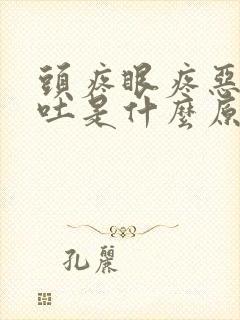 頭疼眼疼惡
吐是什麼原
孔麗